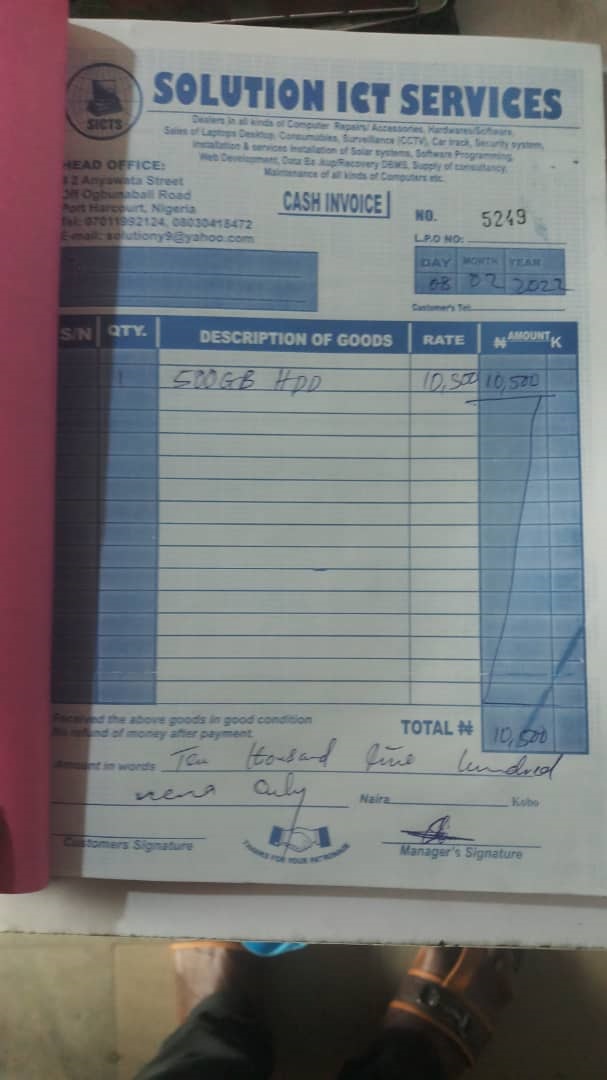 SICTS
SOLUTION ICT SERVICES
Dealers in all kinds of Computer Repairs/ Accessories, Hardwares/Software,
Sales of Laptops Desktop, Consumables, Surveillance (CCTV), Car track, Security system,
Installation & services Installation of Solar systems, Software Programming,
Web Development, Data Ba /kup/Recovery DBMS, Supply of consultancy,
Maintenance of all kinds of Computers etc.
HEAD OFFICE:
# 2 Anyawata Street
Off Ogbunabali Road
Port Harcourt, Nigeria
Tel: 07011992124, 08030418472
E-mail: solutiony9@yahoo.com
CASH INVOICE
NO. 5249
L.P.O NO:
DAY MONTH YEAR
08 02 2022
Customer's Tel:
S/N QTY. DESCRIPTION OF GOODS RATE ₦ AMOUNT K
1 500GB HDD 10,500 10,500
Received the above goods in good condition
No refund of money after payment.
TOTAL ₦ 10,500
Amount in words Ten thousand five hundred
naira Only Naira Kobo
Customers Signature
THANKS FOR YOUR PATRONAGE
Manager's Signature